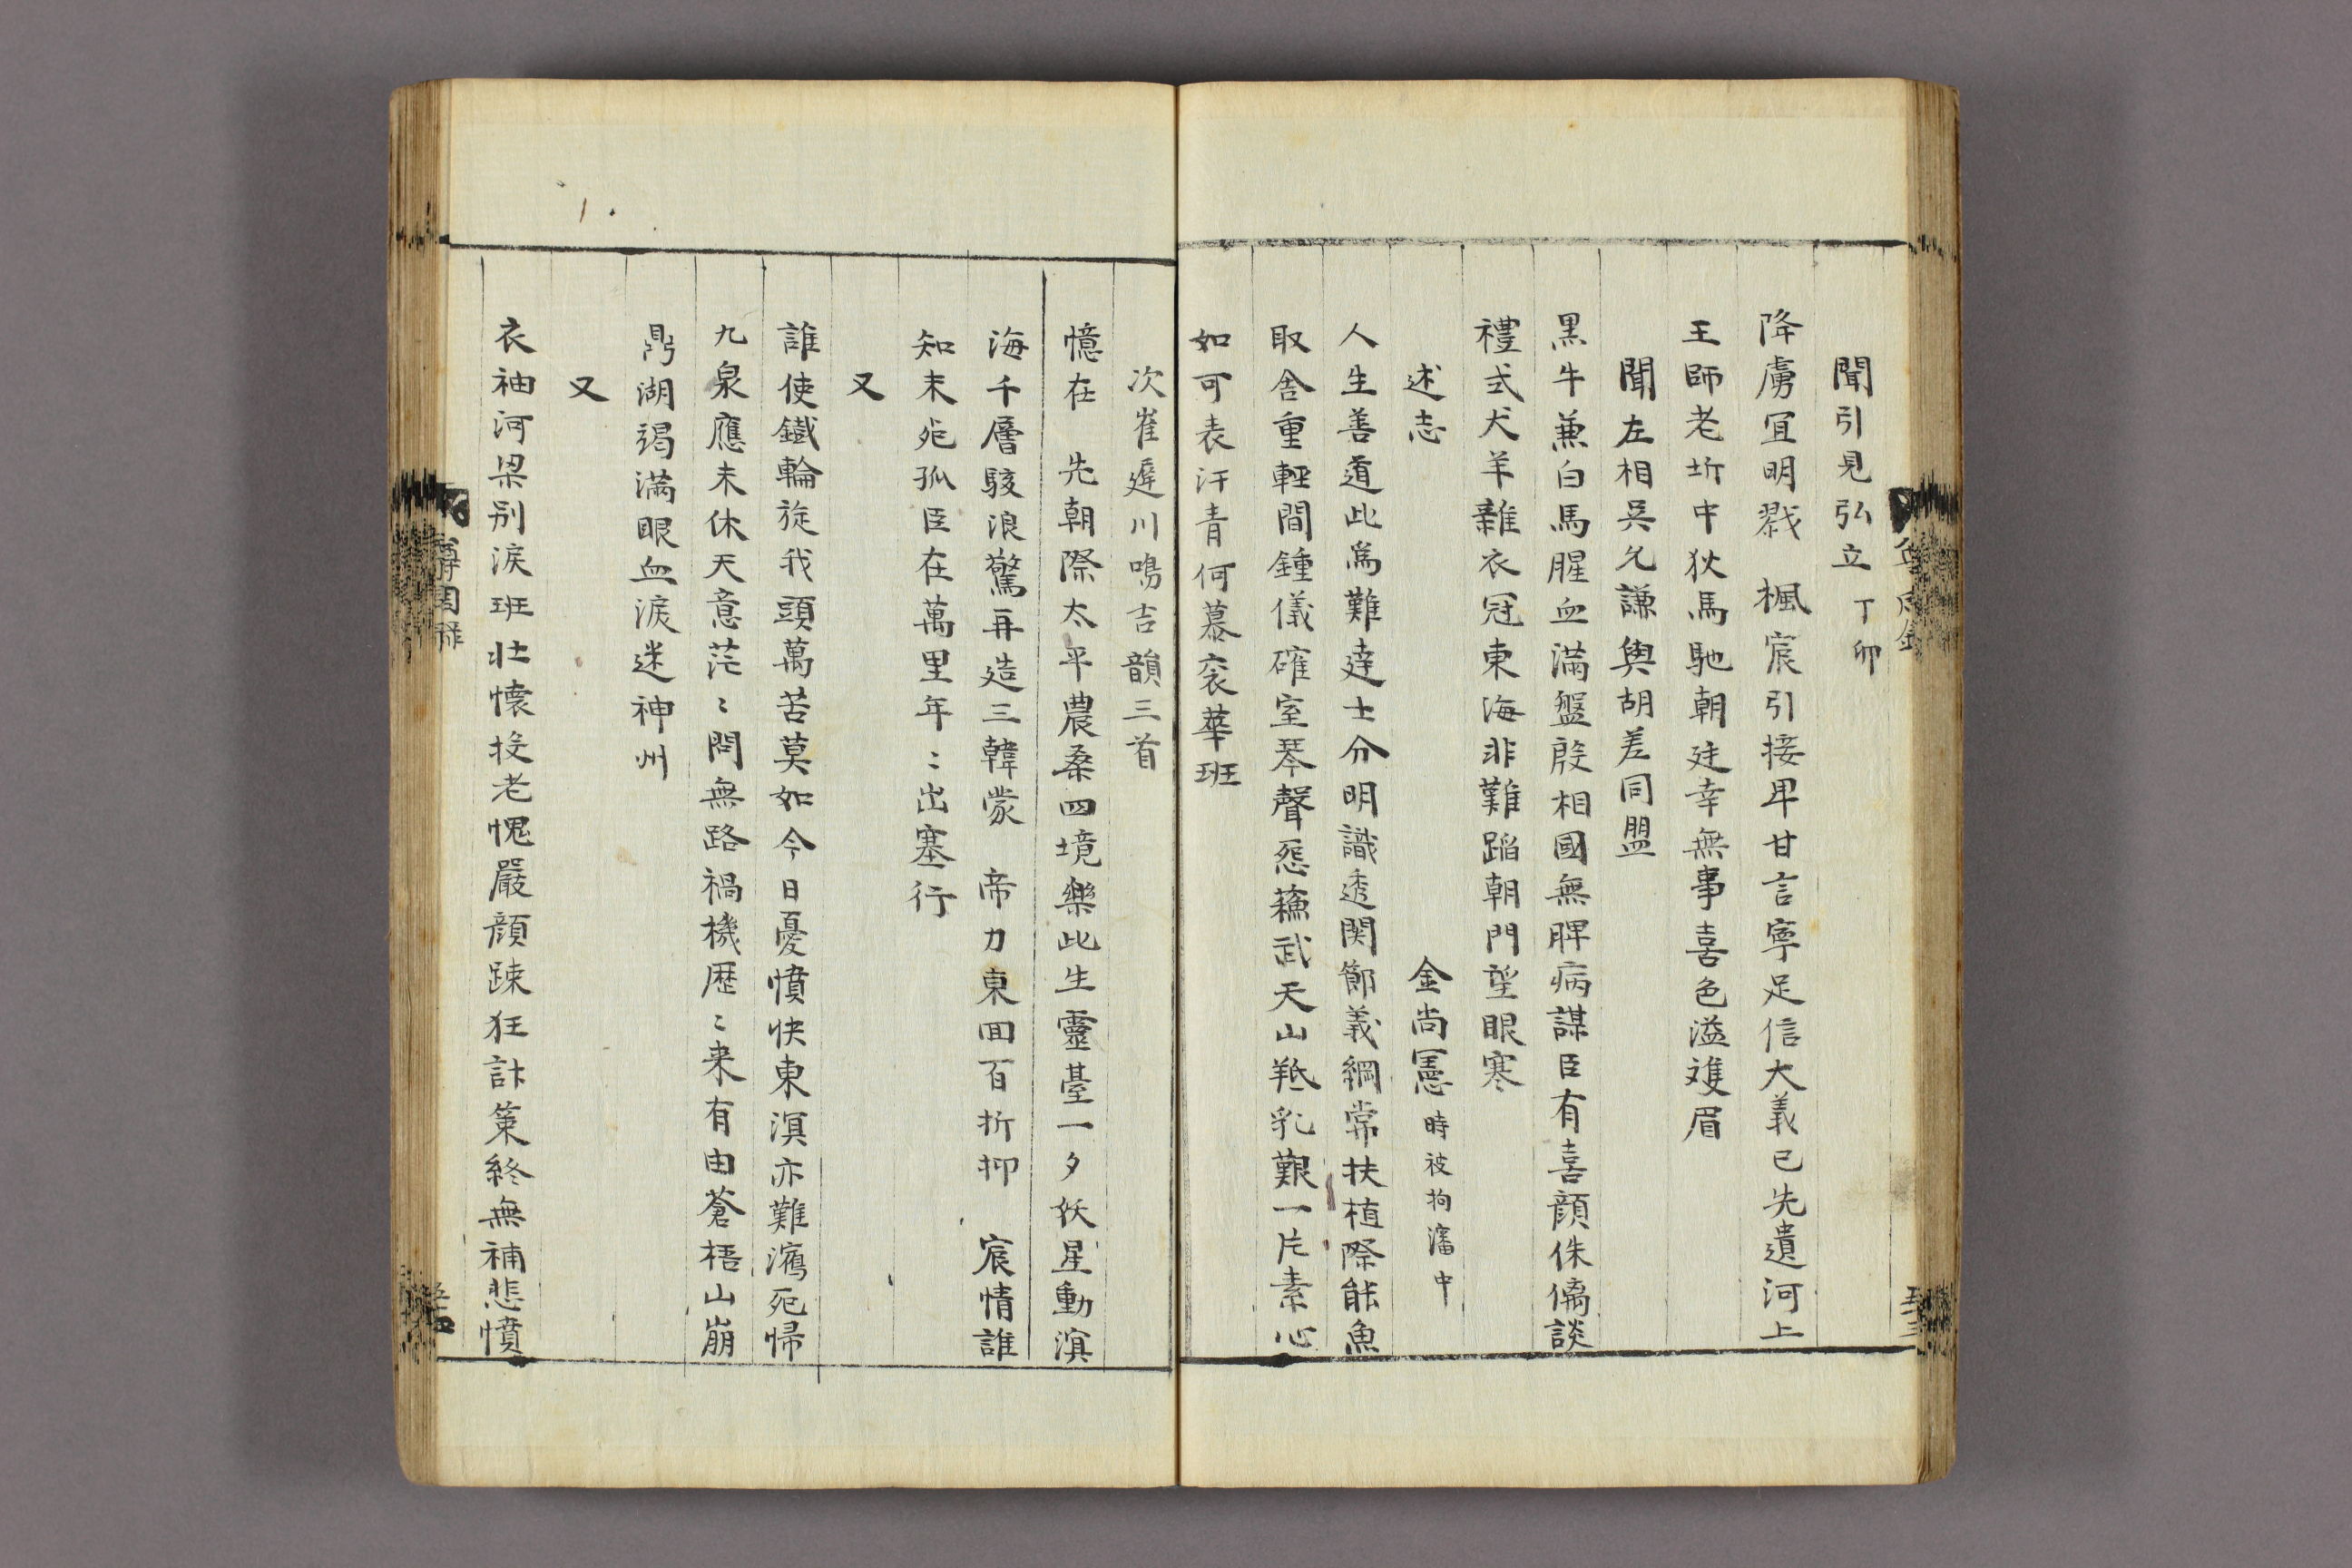 聞引見弘立 丁卯
降虜宜明戮 楓宸引接卑甘言寧足信大義已先遺河上
王師老圻中狄馬馳朝廷幸無事喜色溢䨇眉
聞左相吳允謙與胡差同盟
黑牛兼白馬腥血滿盤殷相國無脾病謀臣有喜顔侏㒧談
禮式犬羊雜衣冠東海非難蹈朝門望眼寒
述志 金尚憲 時被拘瀋中
人生善道此爲難達士分明識透関節義綱常扶植際能魚
取舍重輕間鍾儀確室琴聲怨蘓武天山羝乳艱一片素心
如可表汗青何慕衮華班
次崔遲川鳴吉韻三首
憶在 先朝際太平農桑四境樂此生靈臺一夕妖星動溟
海千層駭浪驚再造三韓蒙 帝力東回百折抑 宸情誰
知未死孤臣在萬里年〻出塞行
又
誰使鐵輪旋我頭萬苦莫如今日憂憤快東溟亦難瀉死㱕
九泉應未休天意茫〻問無路禍機歴〻来有由蒼梧山崩
鼎湖渴滿眼血淚迷神州
又
衣袖河梁別淚班壯懷投老愧嚴顔踈狂計策終無補悲憤